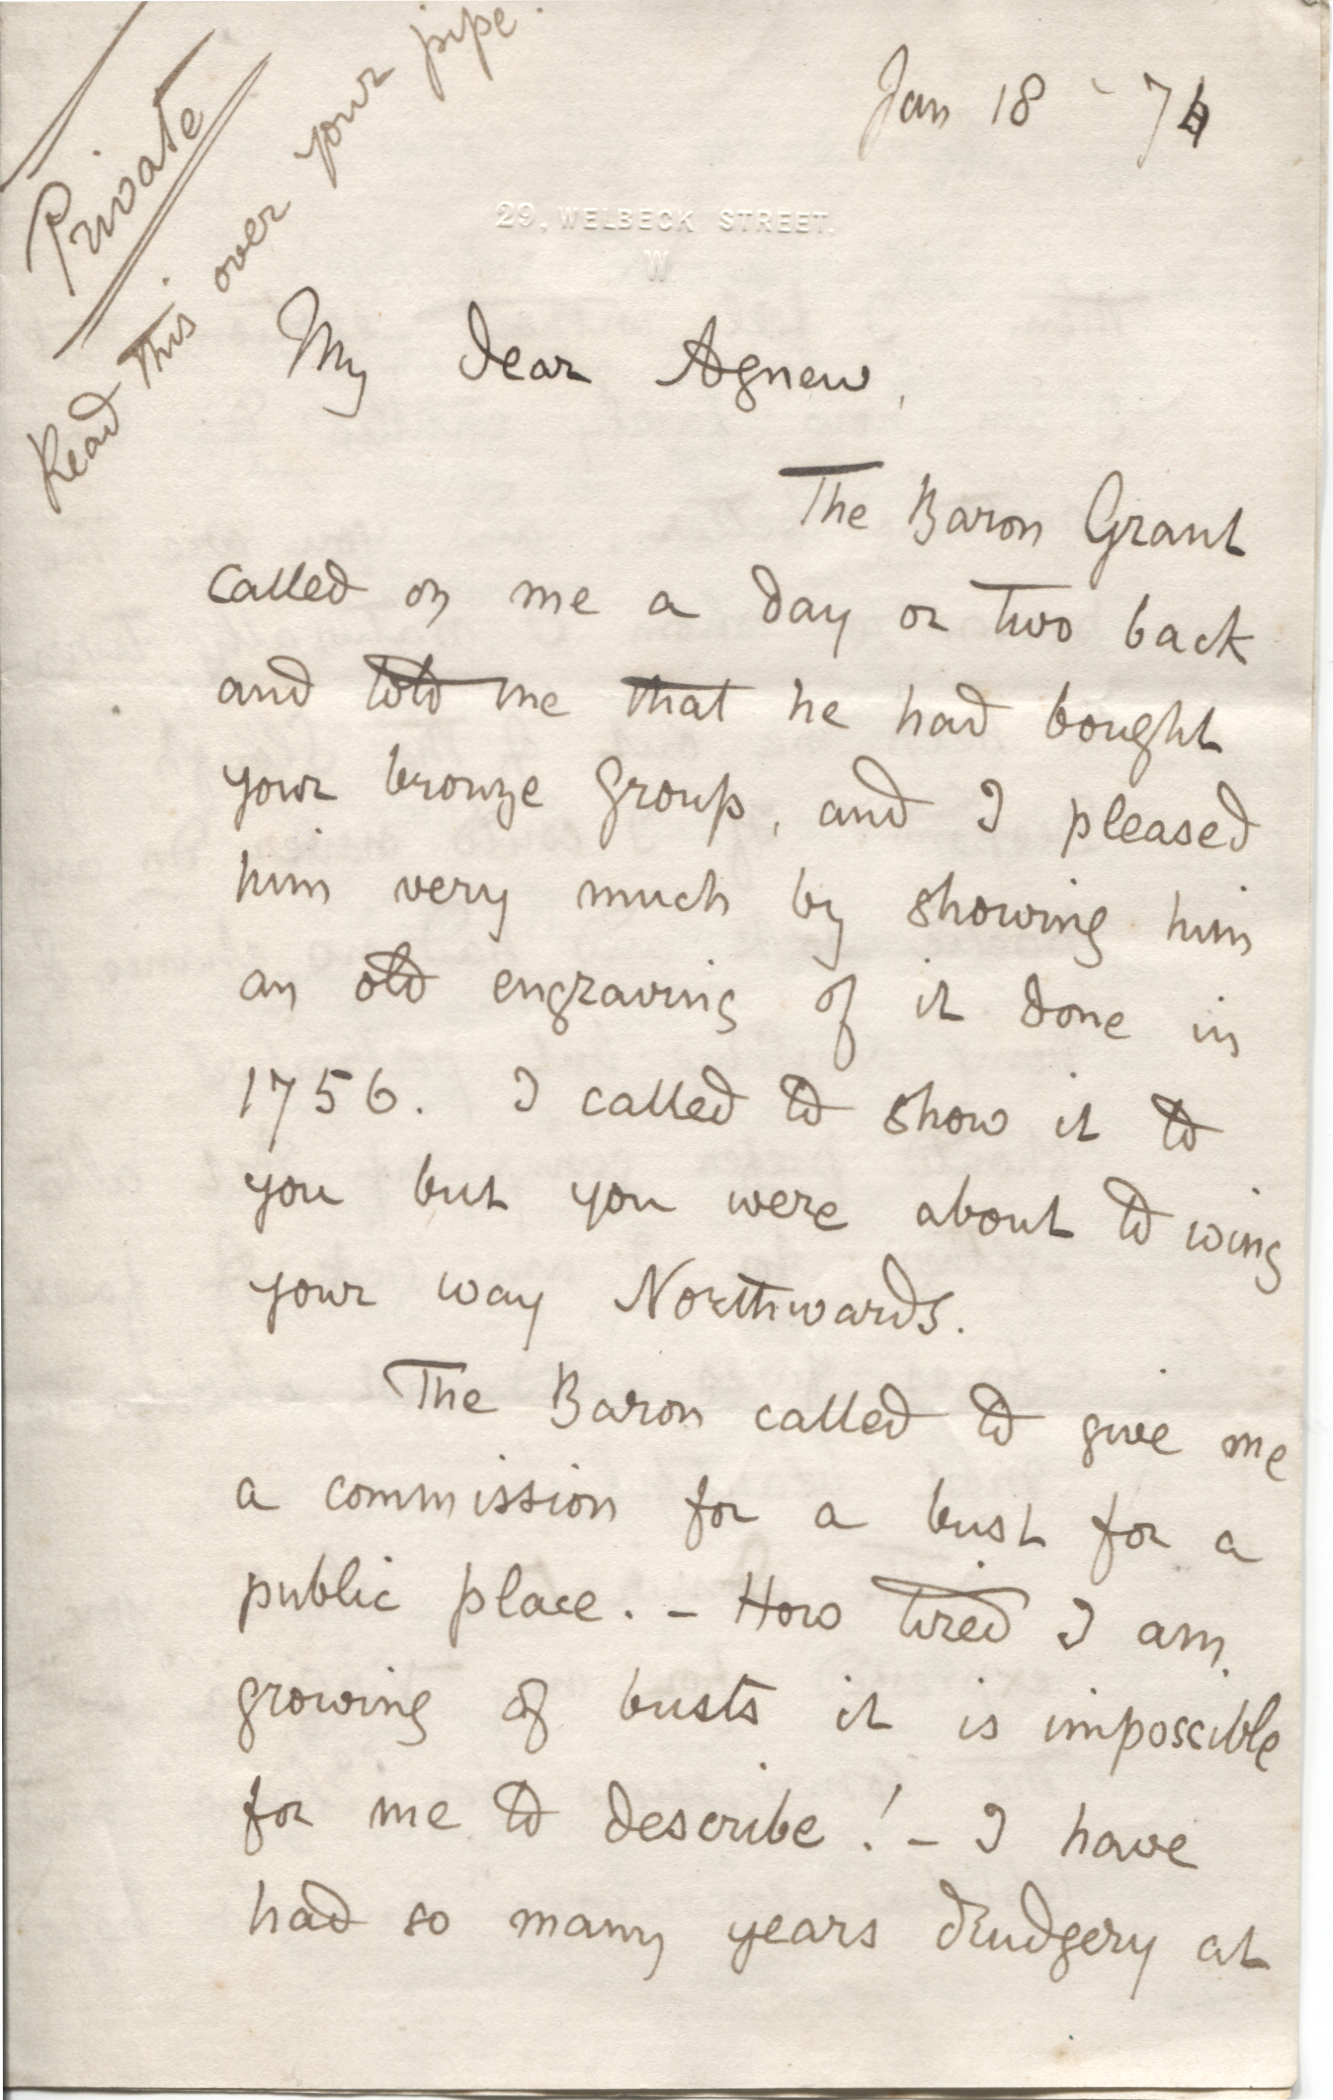 Private
Read this over your pipe.
Jan 18 - 74
29, WELBECK STREET.
W
My dear Agnew,
The Baron Grant
called on me a day or two back
and told me that he had bought
your bronze group, and I pleased
him very much by showing him
an old engraving of it done in
1756. I called to show it to
you but you were about to wing
your way Northwards.
The Baron called to give me
a commission for a bust for a
public place. - How tired I am
growing of busts it is impossible
for me to describe! - I have
had so many years drudgery at